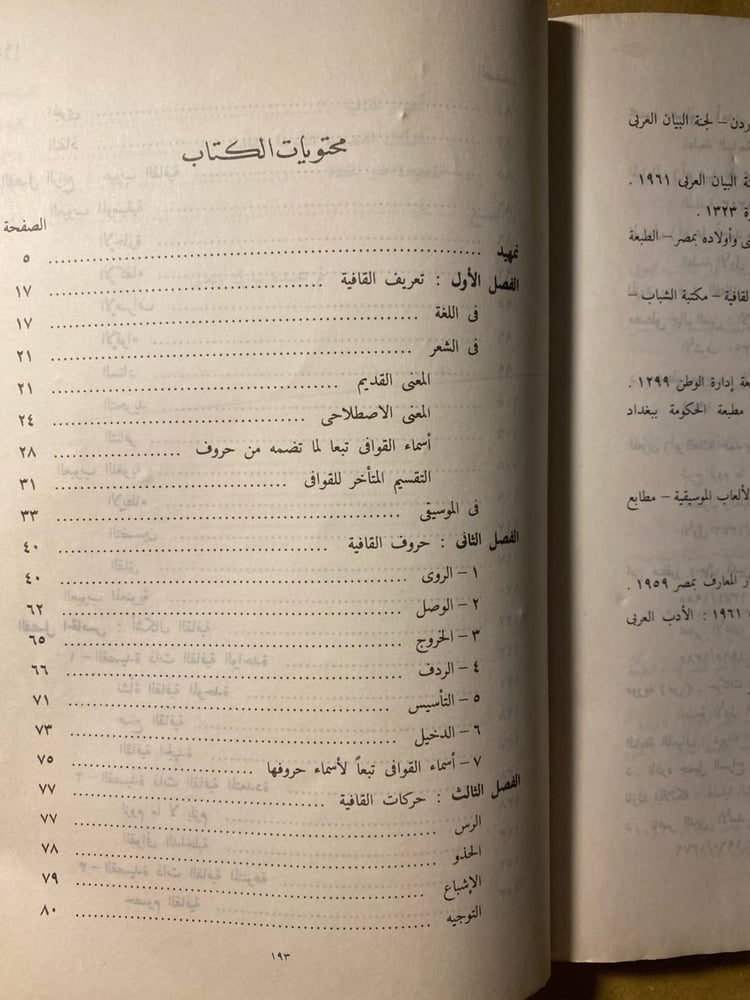 محتويات الكتاب
الصفحة
تمهيد ... ٥
الفصل الأول : تعريف القافية ... ١٧
فى اللغة ... ١٧
فى الشعر ... ٢١
المعنى القديم ... ٢١
المعنى الاصطلاحى ... ٢٤
أسماء القوافى تبعا لما تضمه من حروف ... ٢٨
التقسيم المتأخر للقوافى ... ٣١
فى الموسيقى ... ٣٣
الفصل الثانى : حروف القافية ... ٤٠
١ – الروى ... ٤٠
٢ – الوصل ... ٦٢
٣ – الخروج ... ٦٥
٤ – الردف ... ٦٦
٥ – التأسيس ... ٧١
٦ – الدخيل ... ٧٣
٧ – أسماء القوافى تبعاً لأسماء حروفها ... ٧٥
الفصل الثالث : حركات القافية ... ٧٧
الرس ... ٧٧
الحذو ... ٧٨
الإشباع ... ٧٩
التوجيه ... ٨٠
١٩٣
– لجنة البيان العربى
البيان العربى ١٩٦١ .
١٣٢٣ .
وأولاده بمصر – الطبعة
القافية – مكتبة الشباب –
إدارة الوطن ١٢٩٩ .
مطبعة الحكومة ببغداد
الألعاب الموسيقية – مطابع
المعارف بمصر ١٩٥٩ .
١٩٦١ : الأدب العربى